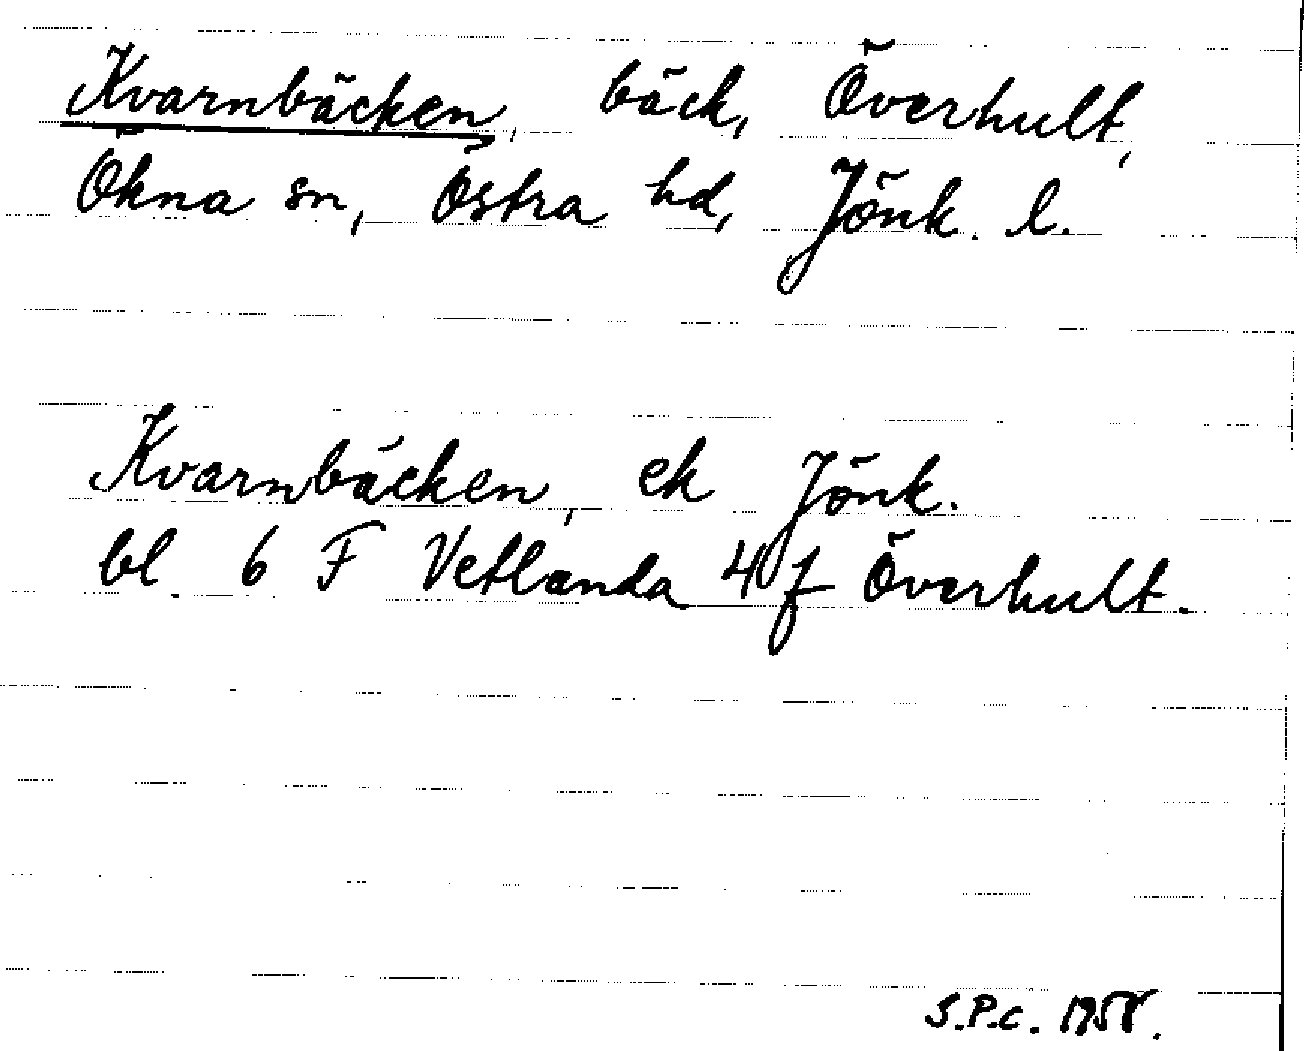 Kvarnbäcken, bäck, Överhult,
Ökna sn, Östra hd, Jönk. l.
Kvarnbäcken, ek Jönk.
bl. 6 F Vetlanda 4 f Överhult.
S.P.C. 1958.